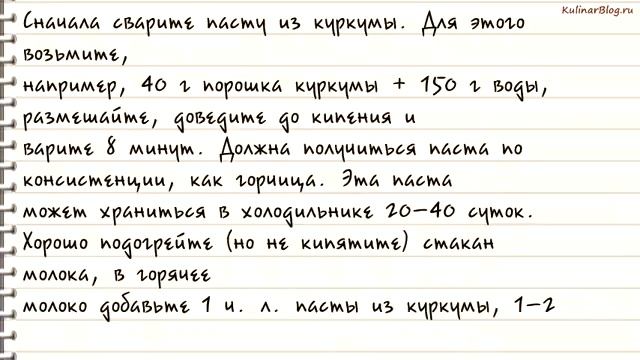 KulinarBlog.ru
Сначала сварите пасту из куркумы. Для этого
возьмите,
например, 40 г порошка куркумы + 150 г воды,
размешайте, доведите до кипения и
варите 8 минут. Должна получиться паста по
консистенции, как горчица. Эта паста
может храниться в холодильнике 20-40 суток.
Хорошо подогрейте (но не кипятите) стакан
молока, в горячее
молоко добавьте 1 ч. л. пасты из куркумы, 1-2